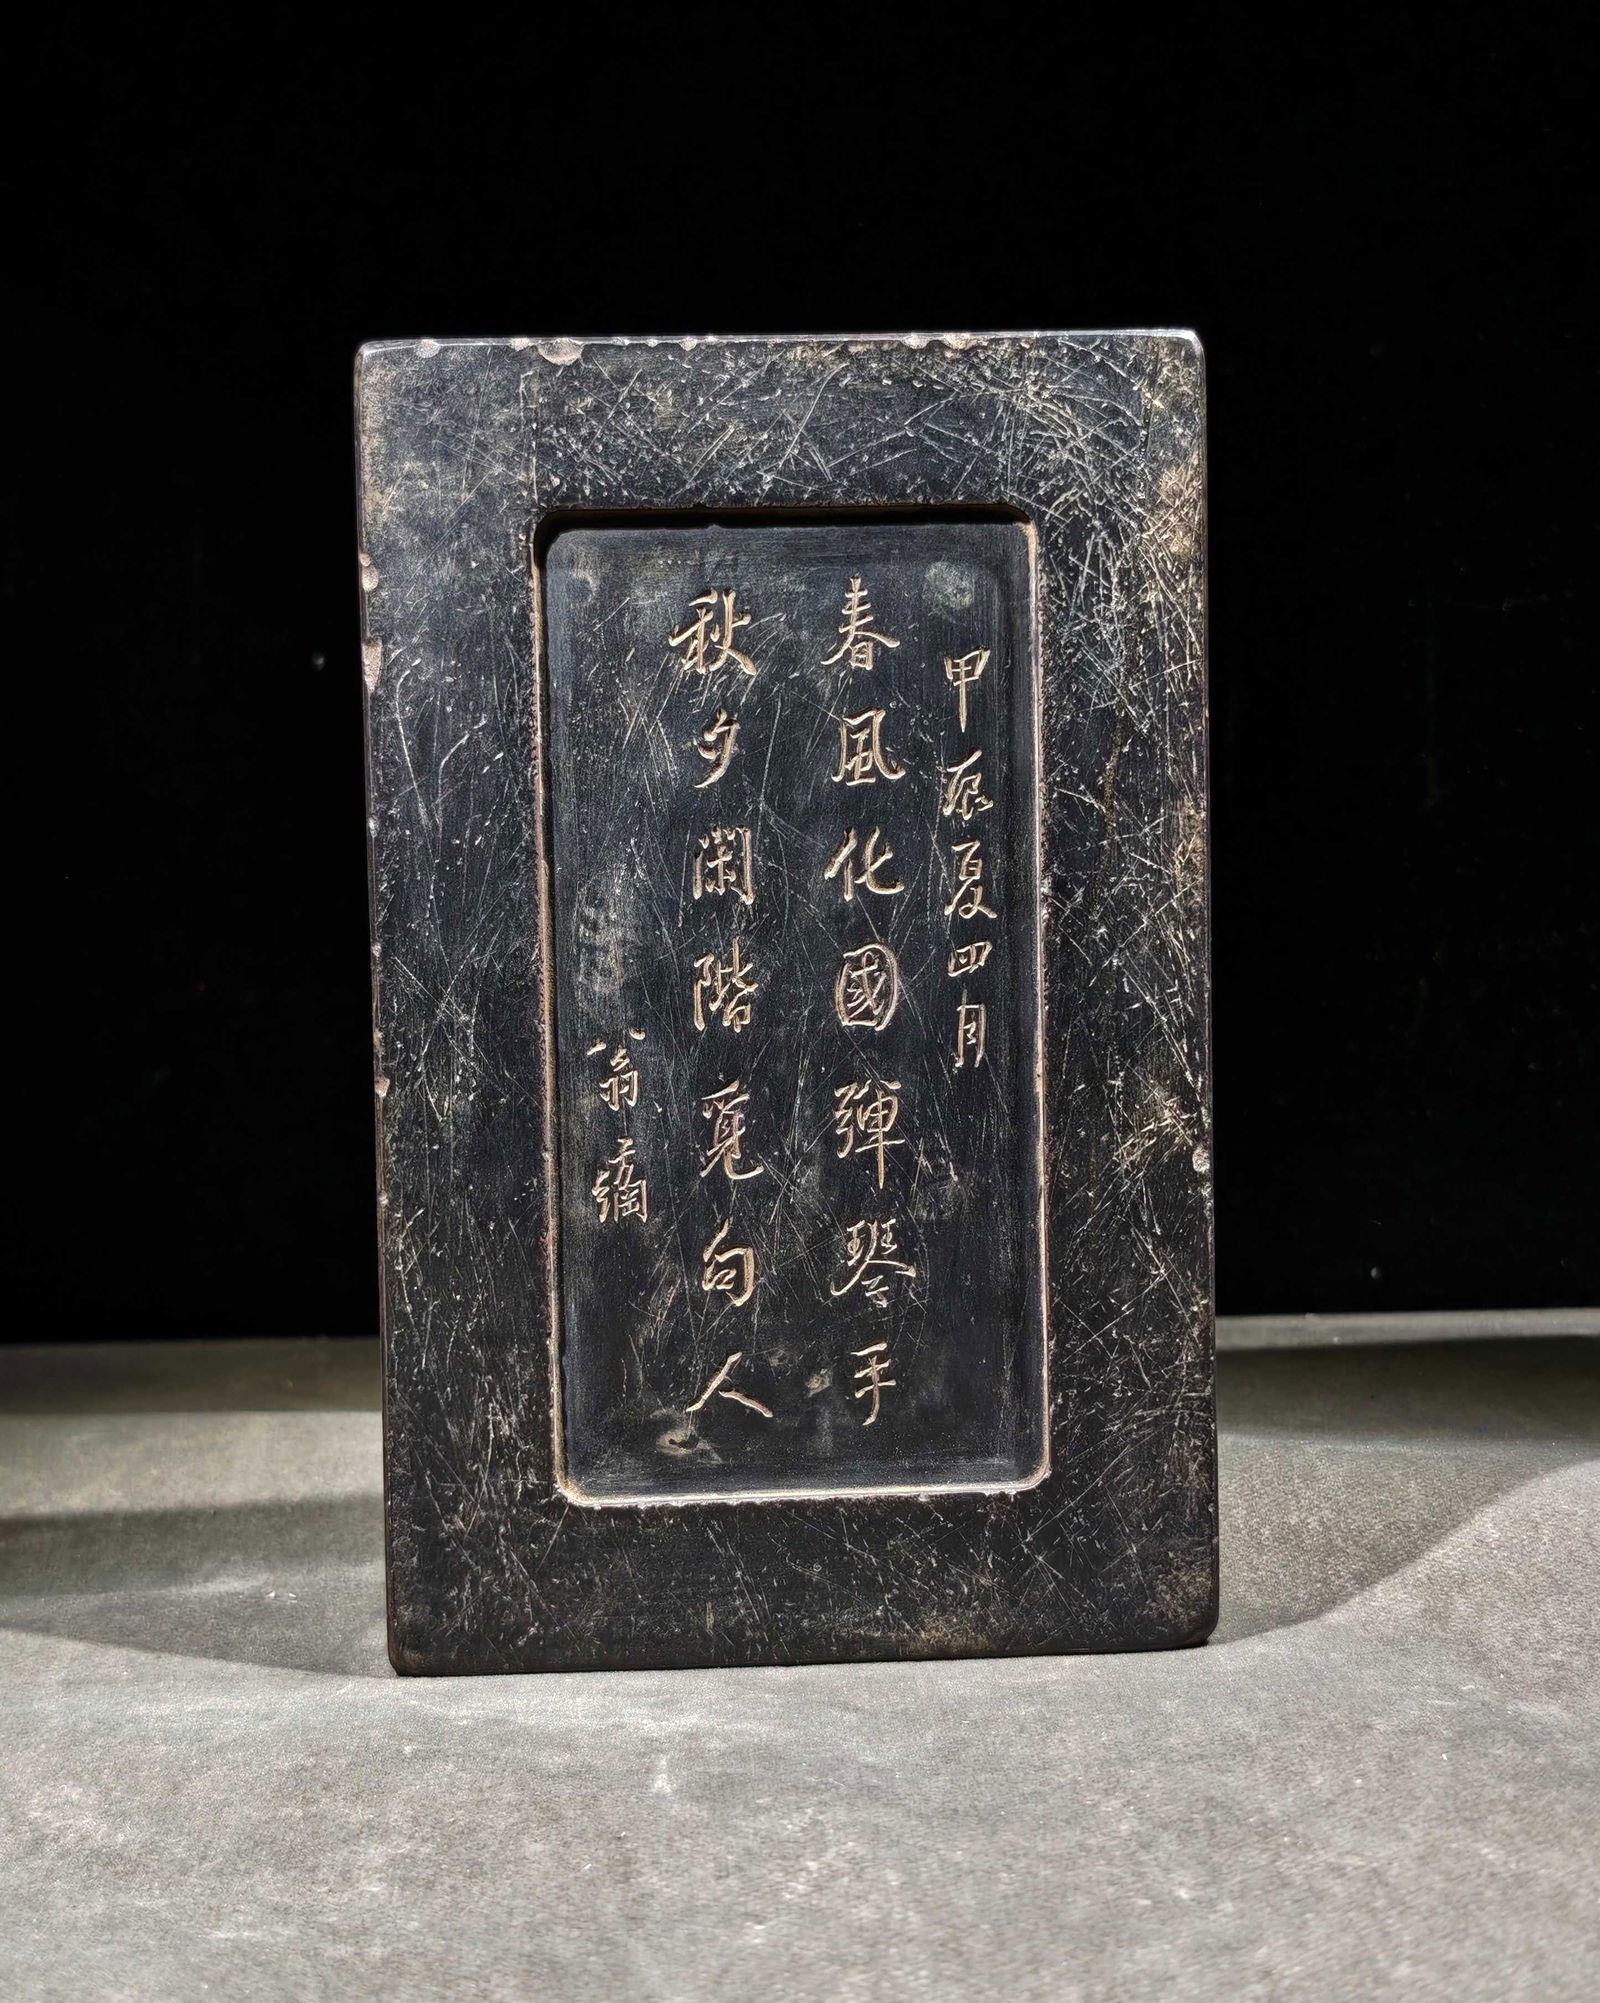 甲辰夏四月
春風化國彈琴手
秋夕閑階覓句人
翁方綱